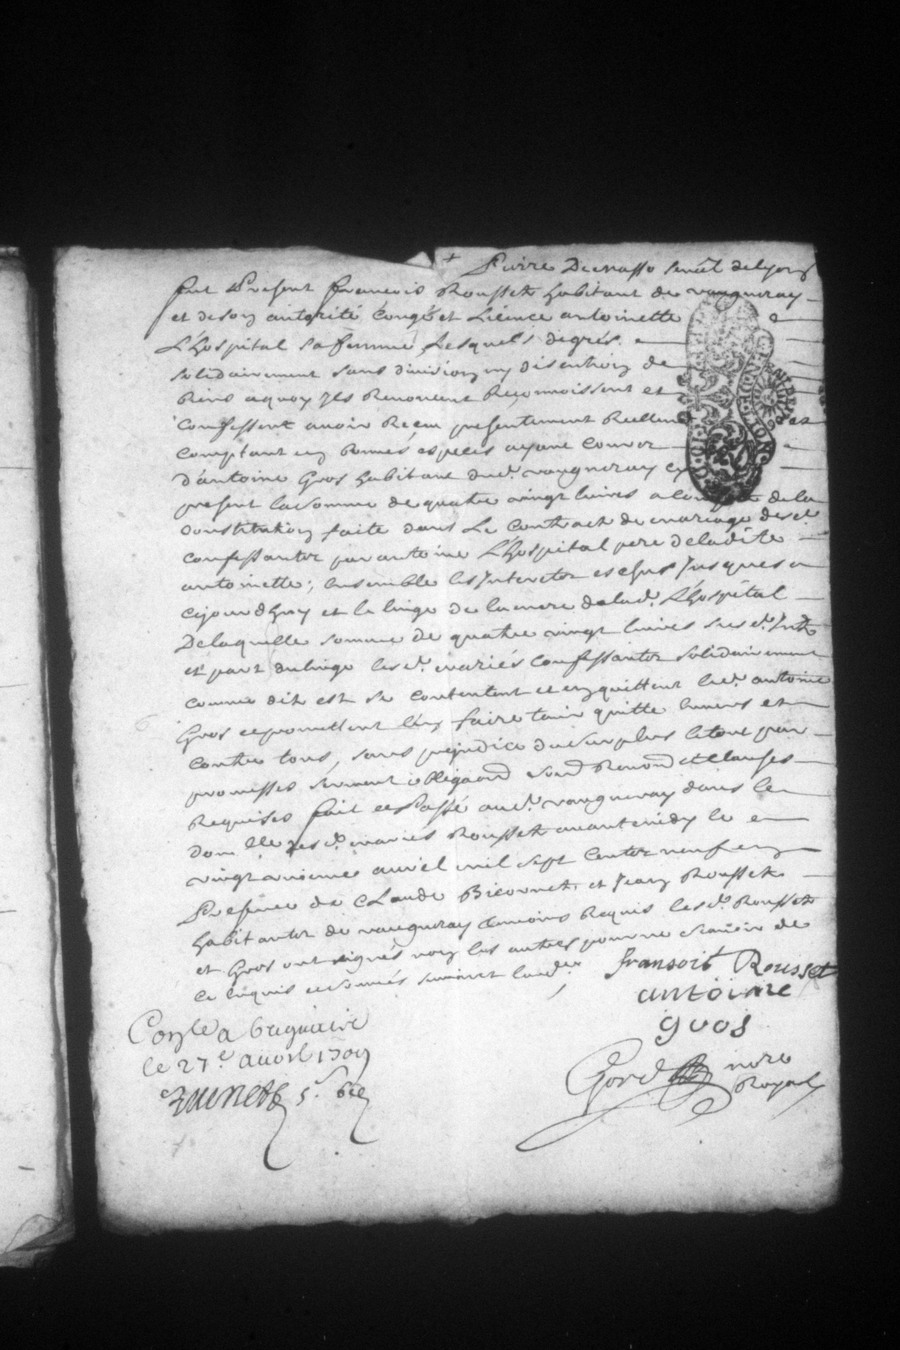 Fut Present francois Rousset habitant de vaugneray
et de son autorité Congé et Licence antoinette
L'hospital sa femme, Lesquels de grés
solidairement sans division ny discution de
Biens a quoy Ils Renoncent Reconnoissent et
Confessent avoir Receu presentement Reellem et
Comptant en bonnes especes ayant Cour
d'antoine Gros habitant dud. vaugneray cy
present la somme de quatre vingt livres a de la
Constitution faite dans Le Contract de mariage desd
confessantz par antoine L'hospital pere de ladite
antoinette; ensemble les Interetz jusques a
cejourdhuy et le linge de la mere de lad. L'hospital
De laquelle somme de quatre vingt livres susd. Intz
et part du linge lesd. mariés Confessantz solidairement
comme dit est se contentent et en quittent led. antoine
Gros et promettent l'en faire tenir quitte envers et
contre tous, sans prejudice du surplus le tout par
promesses serment obligaon Renonon et Clauses
Requises fait et Passé aud. vaugneray dans le
domlle desd. mariés Rousset avant midy le
vingt avril mil sept Centz neuf en
Presence de Claude et Jean Rousset
habitantz de vaugneray temoins Requis lesd. Rousset
et Gros ont signés non les autres pour ne scavoir de
ce enquis et suivant lord.
fransois Rousset
antoinne
gros
nore
Royal
Conlle a
le 27e avril 1709